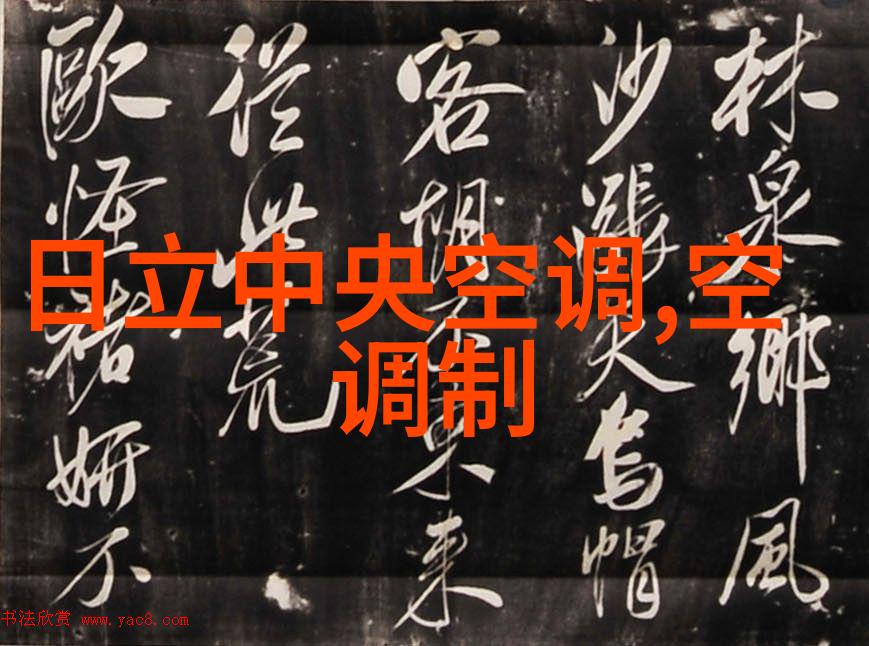 日立中央空调,空
调制
林泉鄉風
沙漲大烏帽
客胡不来
從此荒
歐怪褚妍不
书法欣赏 www.yac8.com